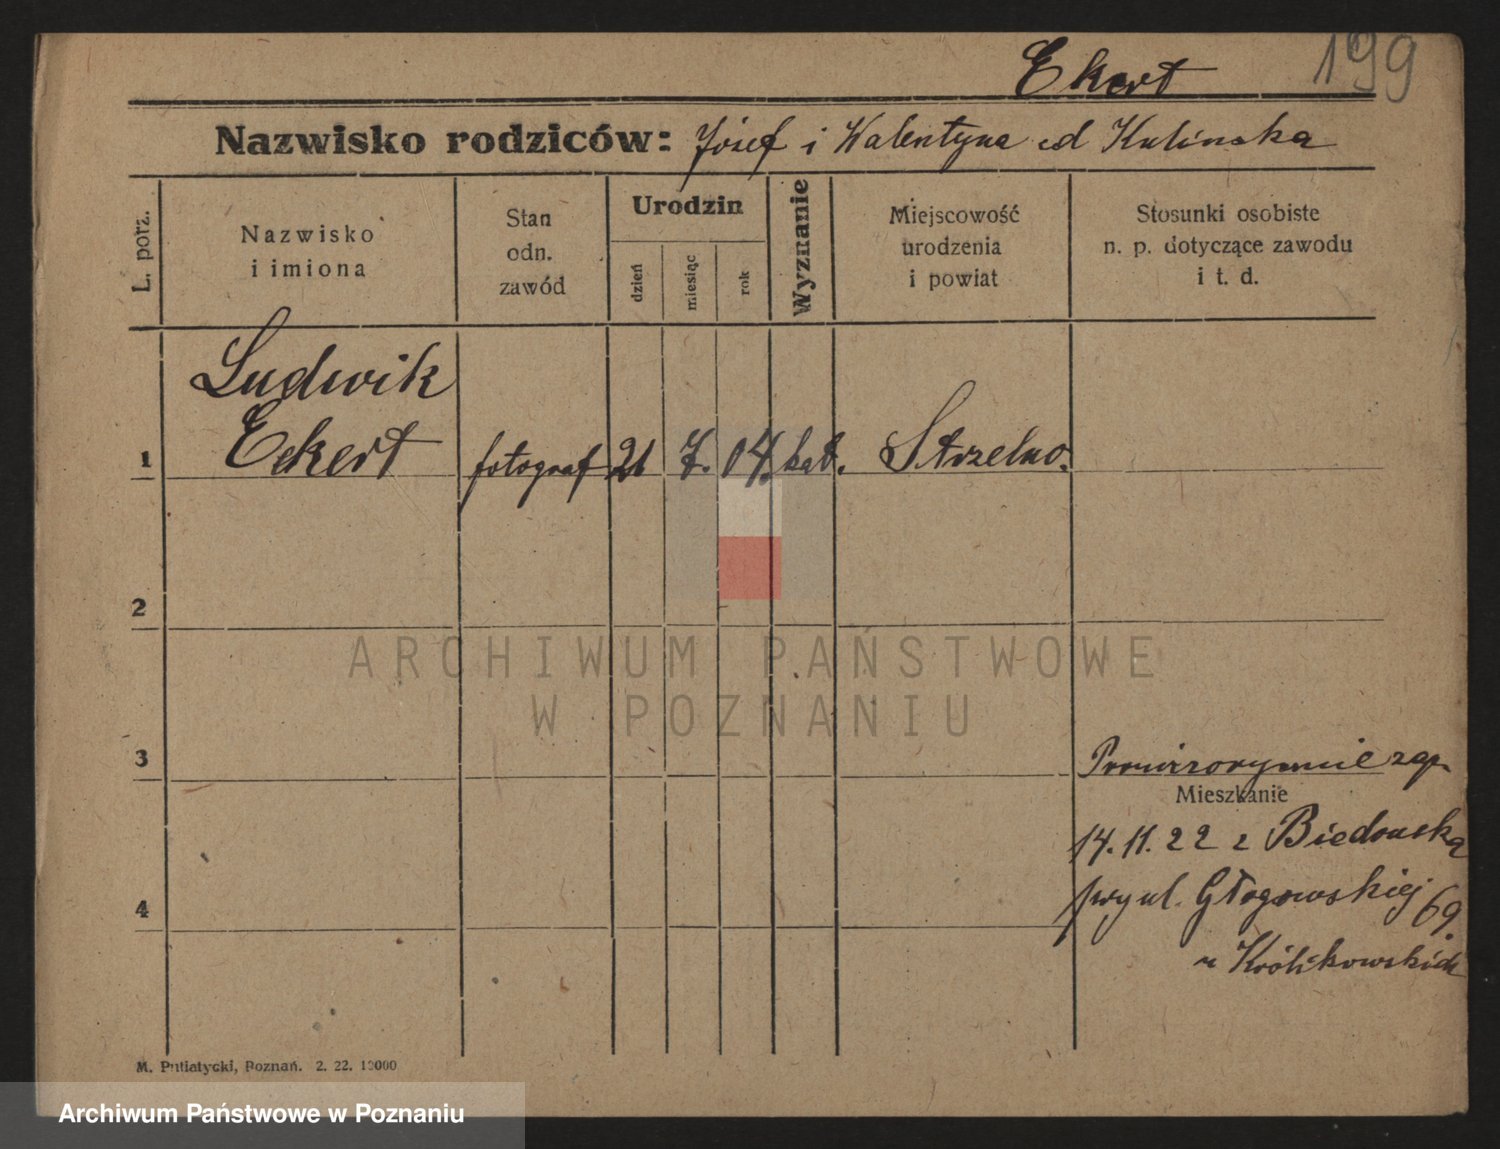 Ekert 199
Nazwisko rodziców: Józef i Walentyna Kulinska
L. porz.
Nazwisko
i imiona
Stan
odn.
zawód
Urodzin
dzień
miesiąc
rok
Wyznanie
Miejscowość
urodzenia
i powiat
Stosunki osobiste
n. p. dotyczące zawodu
i t. d.
Ludwik
1 Eckert fotograf 21 7. 04. kat. Strzelno.
2
ARCHIWUM PAŃSTWOWE
W POZNANIU
3 Prowizorycznie zap.
Mieszkanie
14.11.22 z Biedruska
4 przy ul. Głogowskiej 69.
u Królikowskich
M. Putiatycki, Poznań. 2. 22. 10000
Archiwum Państwowe w Poznaniu